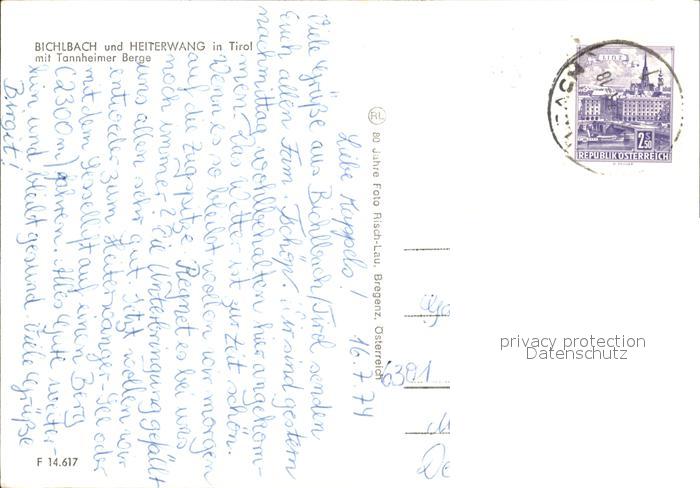 BICHLBACH und HEITERWANG in Tirol
mit Tannheimer Berge
LINZ
2 S 50
REPUBLIK ÖSTERREICH
RL
80 Jahre Foto Risch-Lau, Bregenz, Österreich
16.7.74
Liebe
Viele Grüße aus Bichlbach/Tirol senden
Euch allen Fam. Tschöp. Wir sind gestern
nachmittag wohlbehalten hier angekom-
men. Das Wetter ist zur Zeit schön.
Wenn es so bleibt wollen wir morgen
auf die Zugspitze. Regnet es bei uns
noch immer? Die Unterbringung gefällt
uns allen sehr gut. Jetzt wollen wir
entweder zum Heiterwanger-See oder
mit dem Sessellift auf einen Berg
(2300m) fahren. Alles Gute weiter-
hin und bleibt gesund. Viele Grüße
Birgit!
6301
privacy protection
Datenschutz
F 14.617